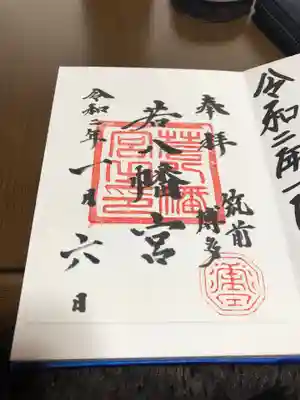 奉拝
筑前
博多
若八幡宮
若八幡
宮之印
令和二年
一月六日
令和二年一